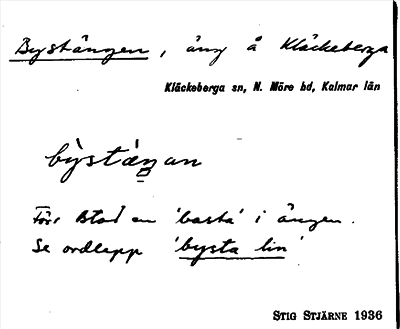 Bystängen, äng å Kläckeberga
Kläckeberga sn, N. Möre hd, Kalmar län
bỳstáŋan
Förr stod en 'basta' i ängen.
Se ordlapp 'bysta lin'
STIG STJÄRNE 1936